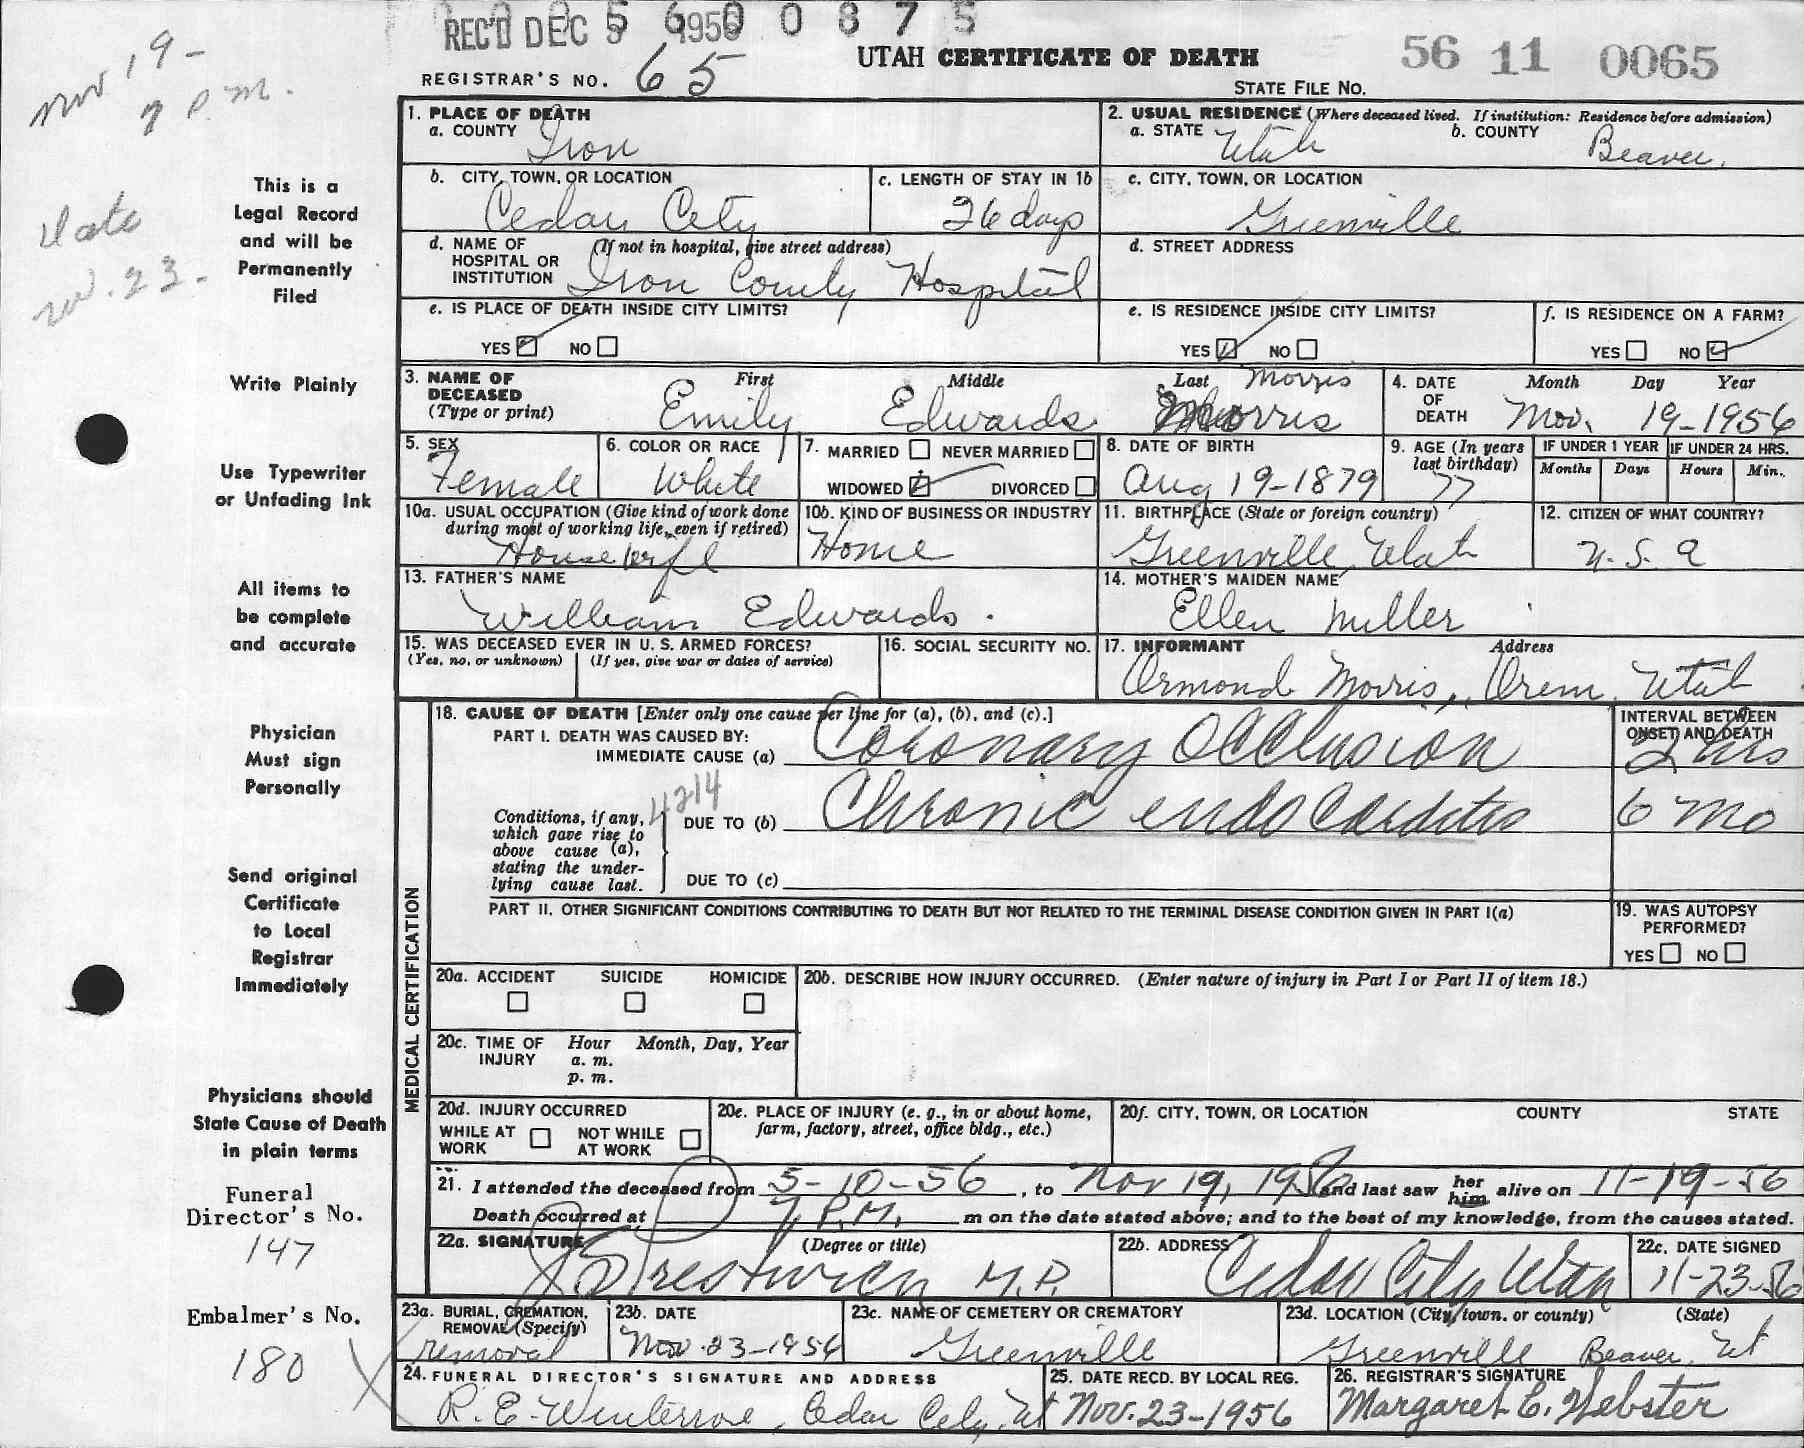 REC'D DEC 5 1956 0 0 8 7 5
UTAH CERTIFICATE OF DEATH
56 11 0065
REGISTRAR'S NO. 65
STATE FILE NO.
Nov 19 -
7 P.M.
Date
Nov. 23 -
This is a
Legal Record
and will be
Permanently
Filed
Write Plainly
Use Typewriter
or Unfading Ink
All items to
be complete
and accurate
Physician
Must sign
Personally
Send original
Certificate
to Local
Registrar
Immediately
Physicians should
State Cause of Death
in plain terms
Funeral
Director's No.
147
Embalmer's No.
180
1. PLACE OF DEATH
a. COUNTY Iron
2. USUAL RESIDENCE (Where deceased lived. If institution: Residence before admission)
a. STATE Utah b. COUNTY Beaver,
b. CITY, TOWN, OR LOCATION Cedar City
c. LENGTH OF STAY IN 1b 26 days
c. CITY, TOWN, OR LOCATION Greenville
d. NAME OF HOSPITAL OR INSTITUTION (If not in hospital, give street address) Iron County Hospital
d. STREET ADDRESS
e. IS PLACE OF DEATH INSIDE CITY LIMITS?
YES NO
e. IS RESIDENCE INSIDE CITY LIMITS?
YES NO
f. IS RESIDENCE ON A FARM?
YES NO
3. NAME OF DECEASED (Type or print)
First Middle Last Morris
Emily Edwards Morris
4. DATE OF DEATH Month Day Year
Nov. 19-1956
5. SEX Female
6. COLOR OR RACE White
7. MARRIED NEVER MARRIED
WIDOWED DIVORCED
8. DATE OF BIRTH Aug 19-1879
9. AGE (In years last birthday) 77
IF UNDER 1 YEAR Months Days
IF UNDER 24 HRS. Hours Min.
10a. USUAL OCCUPATION (Give kind of work done during most of working life, even if retired) Housewife
10b. KIND OF BUSINESS OR INDUSTRY Home
11. BIRTHPLACE (State or foreign country) Greenville, Utah
12. CITIZEN OF WHAT COUNTRY? U.S.A
13. FATHER'S NAME
William Edwards.
14. MOTHER'S MAIDEN NAME
Ellen Miller
15. WAS DECEASED EVER IN U. S. ARMED FORCES?
(Yes, no, or unknown) (If yes, give war or dates of service)
16. SOCIAL SECURITY NO.
17. INFORMANT Address
Ormond Morris, Orem, Utah
MEDICAL CERTIFICATION
18. CAUSE OF DEATH [Enter only one cause per line for (a), (b), and (c).]
PART I. DEATH WAS CAUSED BY:
IMMEDIATE CAUSE (a) Coronary Occlusion
INTERVAL BETWEEN ONSET AND DEATH
2 hrs
4214
Conditions, if any, which gave rise to above cause (a), stating the underlying cause last.
DUE TO (b) Chronic endocarditis 6 Mo
DUE TO (c)
PART II. OTHER SIGNIFICANT CONDITIONS CONTRIBUTING TO DEATH BUT NOT RELATED TO THE TERMINAL DISEASE CONDITION GIVEN IN PART I(a)
19. WAS AUTOPSY PERFORMED?
YES NO
20a. ACCIDENT SUICIDE HOMICIDE
20b. DESCRIBE HOW INJURY OCCURRED. (Enter nature of injury in Part I or Part II of item 18.)
20c. TIME OF INJURY Hour Month, Day, Year
a. m.
p. m.
20d. INJURY OCCURRED
WHILE AT WORK NOT WHILE AT WORK
20e. PLACE OF INJURY (e. g., in or about home, farm, factory, street, office bldg., etc.)
20f. CITY, TOWN, OR LOCATION COUNTY STATE
21. I attended the deceased from 5-10-56, to Nov 19, 1956 and last saw her him alive on 11-19-56
Death occurred at 7 P.M. m on the date stated above; and to the best of my knowledge, from the causes stated.
22a. SIGNATURE (Degree or title)
Prestwich M.D.
22b. ADDRESS Cedar City Utah
22c. DATE SIGNED 11-23-56
23a. BURIAL, CREMATION, REMOVAL (Specify) removal
23b. DATE Nov. 23-1956
23c. NAME OF CEMETERY OR CREMATORY Greenville
23d. LOCATION (City, town, or county) (State)
Greenville Beaver, Ut
24. FUNERAL DIRECTOR'S SIGNATURE AND ADDRESS
R. E. Winterrose, Cedar City, Ut
25. DATE RECD. BY LOCAL REG.
Nov. 23-1956
26. REGISTRAR'S SIGNATURE
Margaret C. Webster